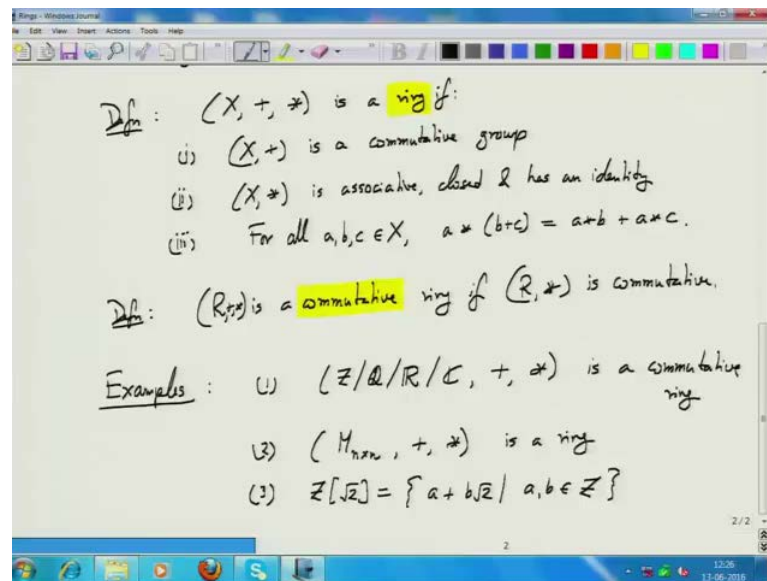 Rings - Windows Journal
File Edit View Insert Actions Tools Help
Defn : (X, +, *) is a ring if:
(i) (X, +) is a commutative group
(ii) (X, *) is associative, closed & has an identity
(iii) For all a,b,c ∈ X, a * (b+c) = a*b + a*c.
Defn : (R,+,*) is a commutative ring if (R, *) is commutative.
Examples : (1) (Z/Q/R/C, +, *) is a commutative
ring
(2) (M_{n×n}, +, *) is a ring
(3) Z[√2] = { a + b√2 | a,b ∈ Z }
2/2
2
12:26
13-06-2016